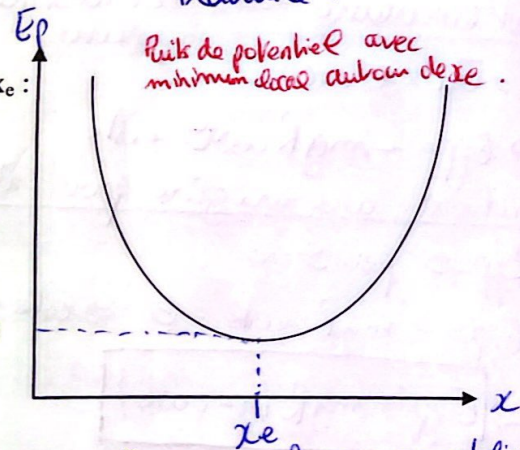 Ep
Puits de potentiel avec
minimum local autour de xe.
xe :
x
xe